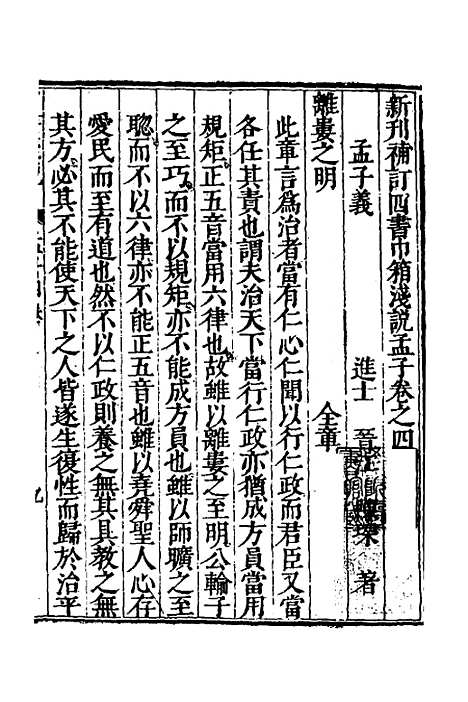 新刊補訂四書巾箱淺說孟子卷之四
孟子義 進士 晉江 陳 著
離婁之明 全章
此章言為治者當有仁心仁聞以行仁政而君臣又當
各任其責也謂夫治天下當行仁政亦猶成方員當用
規矩正五音當用六律也故雖以離婁之至明公輸子
之至巧而不以規矩亦不能成方員也雖以師曠之至
聰而不以六律亦不能正五音也雖以堯舜聖人心存
愛民而至有道也然不以仁政則養之無其具教之無
其方必其不能使天下之人皆遂生復性而歸於治平